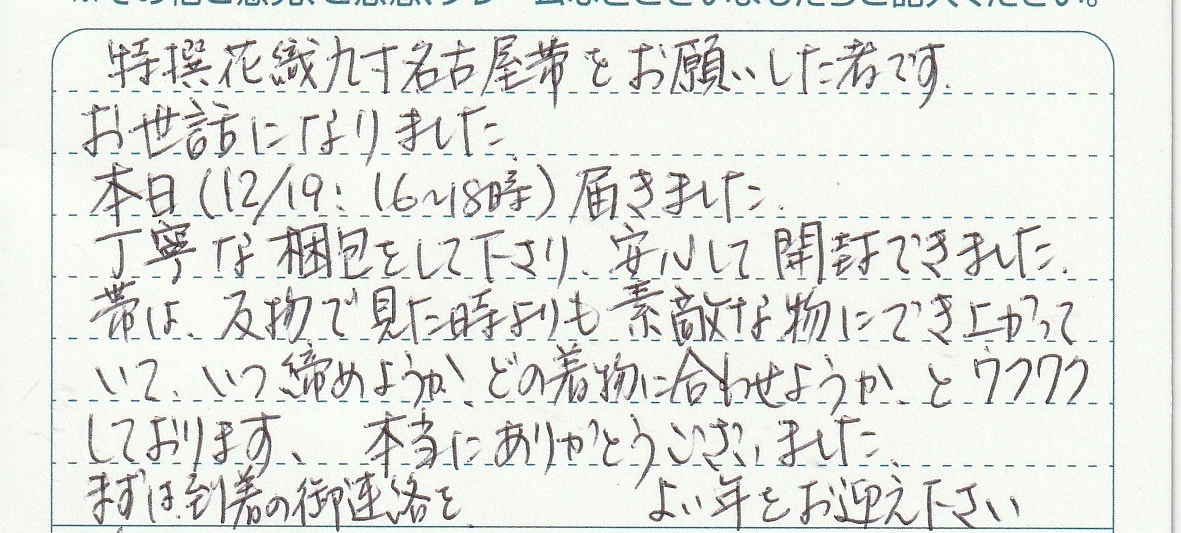 その他ご意見、ご感想、クレームなどございましたらご記入ください。
特撰花織九寸名古屋帯をお願いした者です.
お世話になりました.
本日(12/19: 16~18時)届きました.
丁寧な梱包をして下さり、安心して開封できました.
帯は、反物で見た時よりも素敵な物にでき上がって
いて、いつ締めようか、どの着物に合わせようか、とワクワク
しております、 本当にありがとうございました.
まずは到着の御連絡を よい年をお迎え下さい